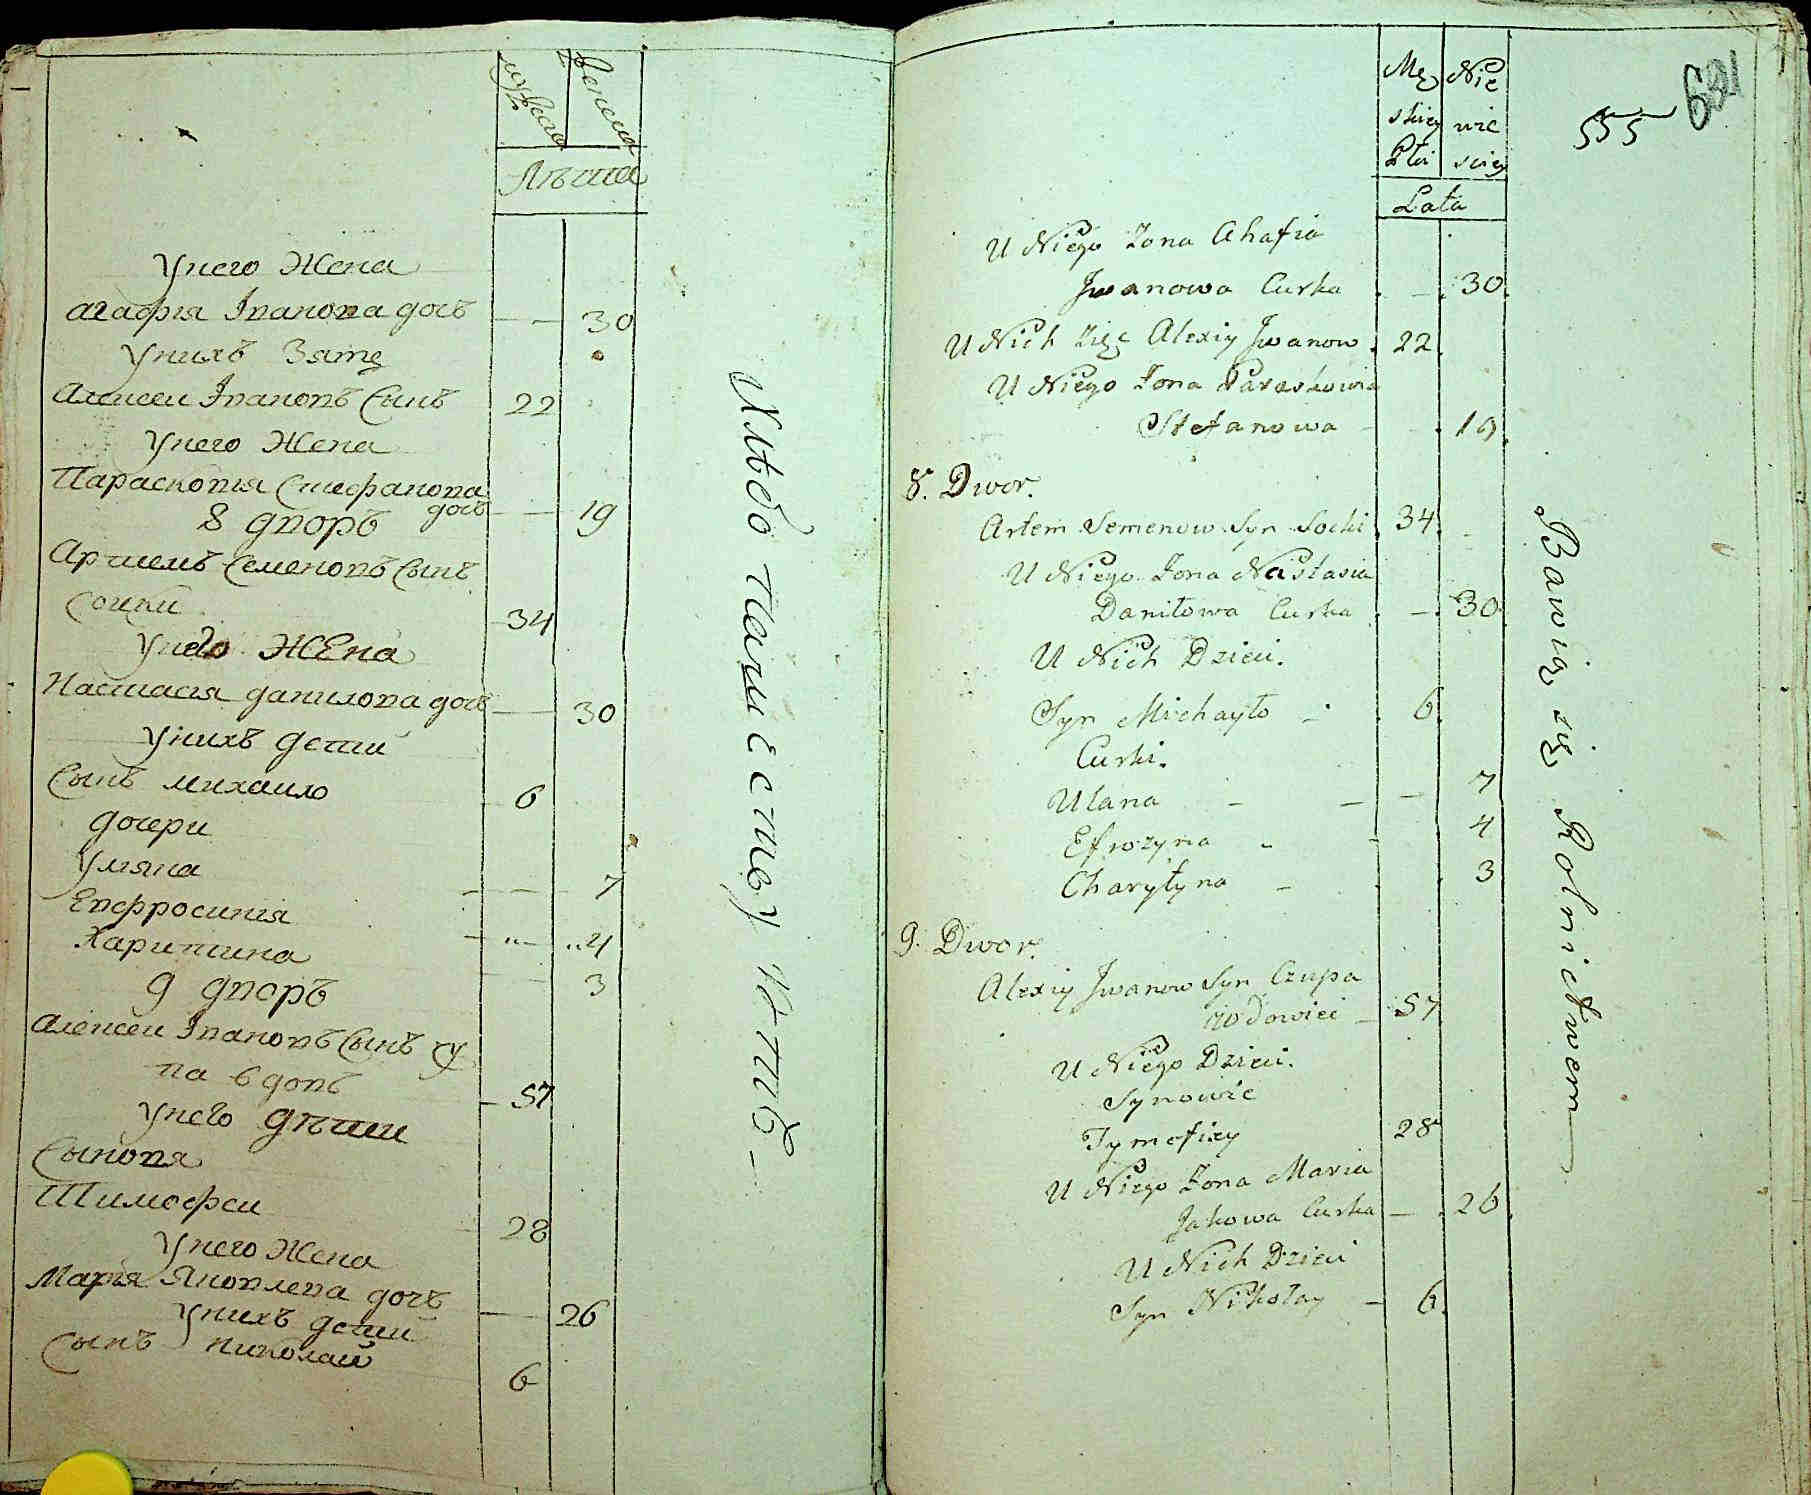 мужеска
женска
Лѣта
Унего Жена
агафия Iванова дочъ — 30
Унихъ Зять
Алексеи Iвановъ Сынъ 22
Унего Жена
Параскопия Стефанова дочъ — 19
8 дворъ
Артемъ Семеновъ Сынъ
Сочки 34
Унего ЖЕна
Настасия данилова дочъ — 30
Унихъ дети
Сынъ михаило 6
дочери
Уляна — 7
Евфросиния — 4
Харитина 3
9 дворъ
Алексеи Iвановъ Сынъ Чу
па вдовъ 57
Унего Дѣти
Сыновя
Тимофеи 28
Унего Жена
Мария Яковлева дочъ — 26
Унихъ дети
Сынъ николаи 6
Хлѣбо пашеством
Męz Nie
skiey wie
Płci sciey
Lata
555
U Niego Zona Ahafia
Jwanowa Curka — 30
U Nich Zięc Alexiy Jwanow 22
U Niego Zona Paraskowia
Stefanowa — 19
8. Dwor.
Artem Semenow Syn Socki 34
U Niego Zona Nastasia
Daniłowa Curka — 30
U Nich Dzieci.
Syn Michayło — 6
Curki.
Ulana — — — 7
Efrozyna - - 4
Charytyna — 3
9. Dwor.
Alexiy Jwanow Syn Czupa
Wdowiec — 57
U Niego Dzieci.
Synowie
Tymofiey 28
U Niego Zona Maria
Jakowa Curka — 26
U Nich Dzieci
Syn Nikołay — 6
Bawią się Rolnictwem